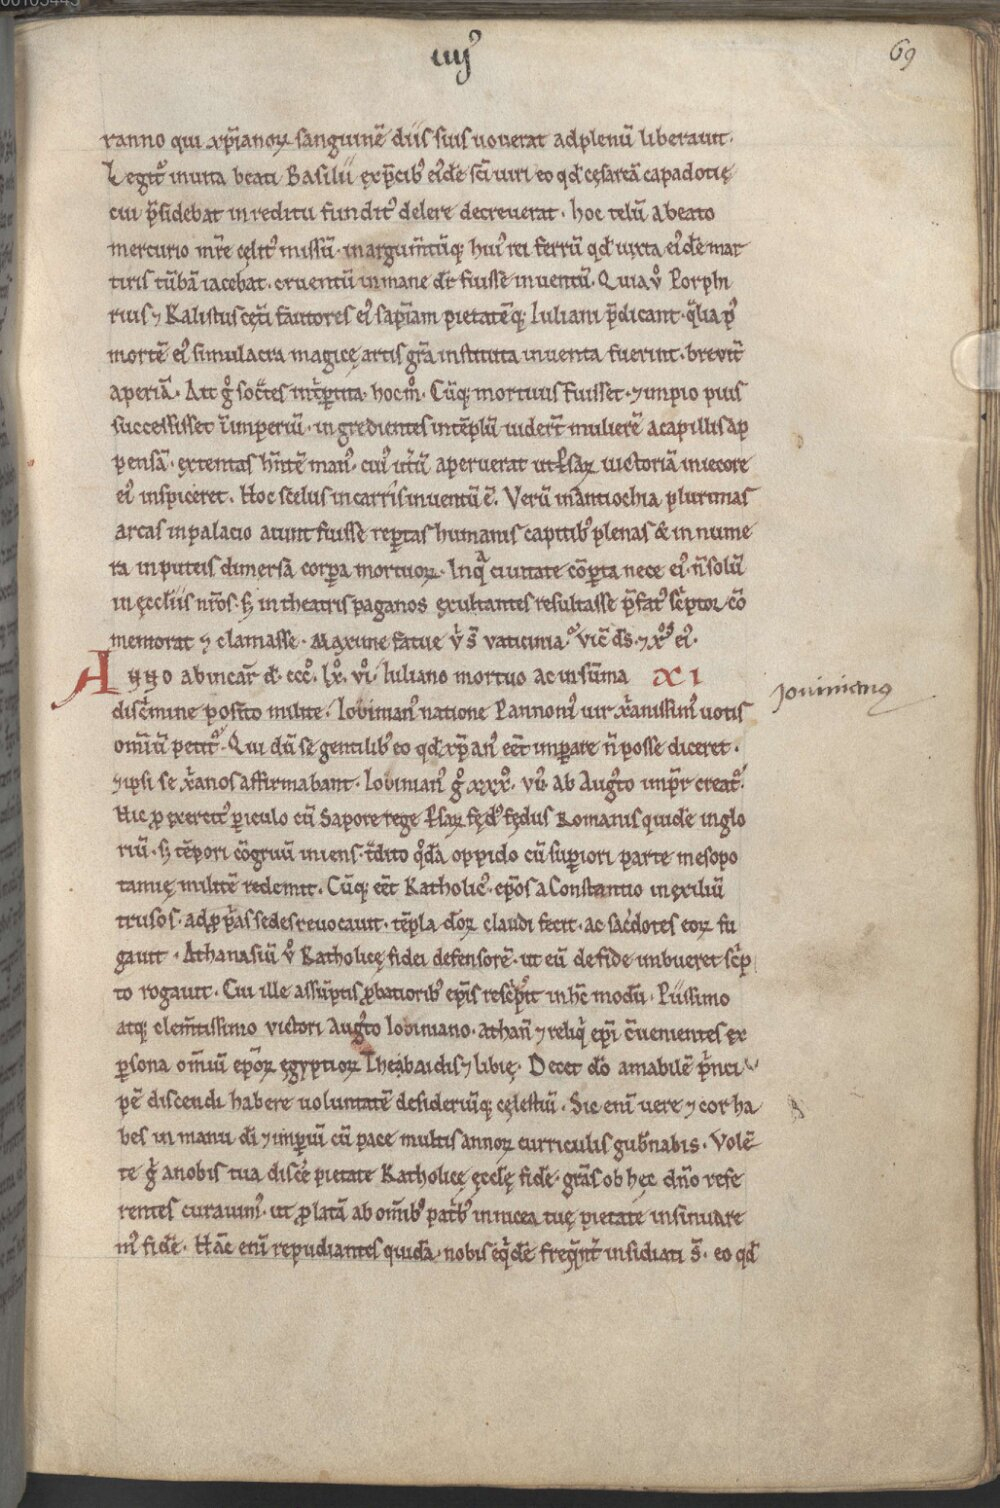 iiijº
69
ranno qui xp̄ianoꝝ sanguinē diis suis uouerat ad plenū liberauit.
Legit᷒ in uita beati Basilii ęxp̄cib᷒ ei᷒dē sc̄i uiri eo qd̄ cęsareā capadotię
cui p̄sidebat in reditu fundit᷒ delere decreuerat. hoc telū a beato
mercurio mr̄e cęlit᷒ missū. in argum̄tūq; hui᷒ rei ferrū qd̄ iuxta ei᷒dē mar
tiris tūbā iacebat. cruentū in mane dr̄ fuisse inuentū. Quia ů Porphi
rius ⁊ Kalistus cęci fautores ei᷒ sapīam pietatēq; Iuliani p̄dicant. q̄lia p᷒
mortē ei᷒ simulacra magicę artis gr̄a instituta inuenta fuerint. breuit̄
aperiā. Ait gͦ soc̄tes int̄ptita. hoc mͦ. Cūq; mortuus fuisset. ⁊ inpio pius
successisset ī imperiū. ingredientes in tēplū uider̄t mulierē a capillis ap
pensā. extentas hn̄tē man᷒. cui᷒ ut̄ū aperuerat ut ꝑsaꝝ uictoriā in iecore
ei᷒ inspiceret. Hoc scelus in carris inuentū ē. Verū in antiochia plurimas
arcas in palacio aiunt fuisse rep̄tas humanis capitib᷒ plenas & innume
ra in puteis dimersa corpora mortuoꝝ. In qͣ ciuitate cōp̄ta nece ei᷒. n̄ solū
in ęcclīis nr̄os. s; in theatris paganos exultantes resultasse p̄fat᷒ sc̄ptor cō
memorat ⁊ clamasse. Maxime fatue ů s̄ uaticinia. qͦ. uic̄ ds̄. ⁊ xͦp̄ͦ ei᷒.
Anno ab incar̄ d̄. cccͦ. lxͦ. vͦi. Iuliano mortuo ac in sūma XI
disc̄mine posito milite. Iobinian᷒ natione Pannoni᷒ uir xr̄anissim᷒ uotis
om̄iū petit᷒. Qui dū se gentilib᷒ eo qd̄ xp̄an᷒ eēt imp̄are n̄ posse diceret.
⁊ ipsi se xr̄anos affirmabant. Iobinian᷒ gͦ xxxͦ. vͦi᷒ ab Aug᷒to imp̄r creat᷒.
Hic ꝓ exercit᷒ piculo cū Sapore rege ꝑsaꝝ fęd᷒ fędus Romanis quidē inglo
riū. s; tēpori cōgruū iniens. t̄dito qͦdā oppido cū sup̄iori parte mesopo
tamię militē redemit. Cūq; eēt Katholic᷒. ep̄os a Constantio in exiliū
trusos. ad ꝓp̄as sedes reuocauit. tēpla dōꝝ claudi fecit. ac sac̄dotes eoꝝ fu
gauit. Athanasiū ů Katholicę fidei defensorē. ut eū de fide inbueret sc̄p
to rogauit. Cui ille assūptis ꝓbatiorib᷒ ep̄is resc̄psit in hc̄ modū. Piissimo
atq; clem̄tissimo uictori Aug᷒to Iobiniano. athan̄ ⁊ reliq̄ ep̄i c̄uenientes ex
ꝑsona om̄iū ep̄oꝝ ęgyptioꝝ Thebaidis ⁊ libię. Decet dō amabilē p̄nci
pē discendi habere uoluntatē desideriūq; cęlestiū. Sic enī uere ⁊ cor ha
bes in manu dī ⁊ imp̄iū cū pace multis annoꝝ curriculis gub̄nabis. Volē
te gͦ a nobis tua disce᷒ pietate Katholicę ęccl̄ę fidē. gr̄as ob hęc dn̄o refe
rentes curauim᷒. ut ꝓlatā ab om̄ib᷒ pat̄b᷒ in nicea tuę pietate insinuare
m᷒ fidē. Hāc enī repudiantes quidā. nobis eq̄dē freq̄nt̄ insidiati s̄. eo qd̄
Jouinian᷒